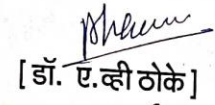 [ डॉ. ए.व्ही ठोके ]